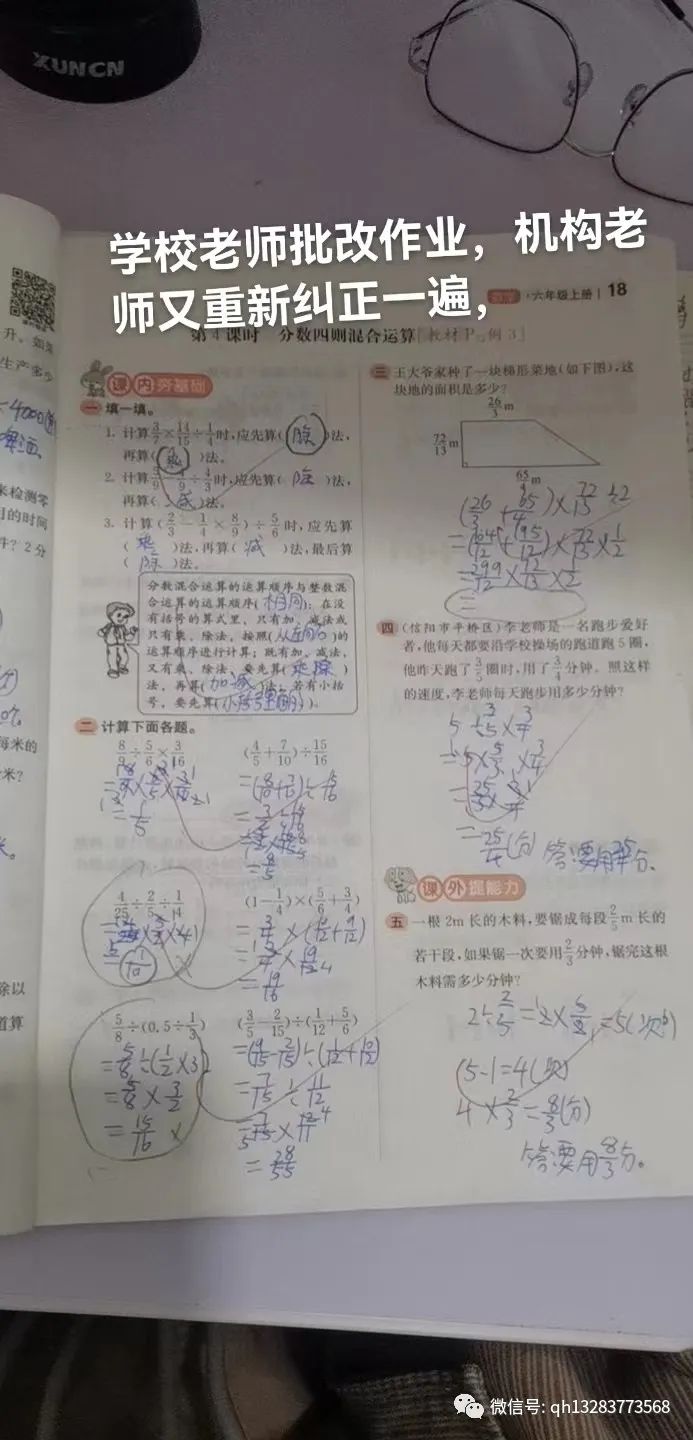 XUNCN
学校老师批改作业，机构老
师又重新纠正一遍，
数学·六年级上册 18
第4课时 分数四则混合运算
课内夯基础
一 填一填。
1. 计算3/7×14/15÷1/4时,应先算( )法,
再算( )法。
2. 计算 时,应先算(除)法,
再算(减)法。
3. 计算(2/3-1/4×8/9)÷5/6时,应先算
(乘)法,再算(减)法,最后算
(除)法。
分数混合运算的运算顺序与整数混
合运算的运算顺序(相同):在没
有括号的算式里,只有加、减法或
只有乘、除法,按照(从左向右)的
运算顺序进行计算;既有加、减法,
又有乘、除法,要先算(乘除)
法,再算(加减)法;若有小括
号,要先算(小括号里面的)。
二 计算下面各题。
8/9÷5/6×3/16 (4/5+7/10)÷15/16
=(8/10+7/10)÷15/16
=1/5
=8/5
4/25÷2/5÷1/14 (1-1/4)×(5/6+3/4)
=3/4×(10/12+9/12)
=1/10 ×
=19/16
5/8÷(0.5÷1/3) (3/5-2/15)÷(1/12+5/6)
=5/8÷(1/2×3) =(9/15-2/15)÷(1/12+10/12)
=5/8×3/2 =7/15÷11/12
=15/16 × =7/15×12/11
=28/55
三 王大爷家种了一块梯形菜地(如下图),这
块地的面积是多少?
26/3 m
72/13 m
65/4 m
(26/3+65/4)×72/13÷2
=(104/12+195/12)×72/13×1/2
=299/12×72/13×1/2
=
四 (信阳市平桥区)李老师是一名跑步爱好
者,他每天都要沿学校操场的跑道跑5圈,
他昨天跑了3/5圈时,用了3/4分钟。照这样
的速度,李老师每天跑步用多少分钟?
5÷3/5×3/4
=5×5/3×3/4
=25/3×3/4
=25/4(分) 答:要用25/4分。
课外提能力
五 一根2m长的木料,要锯成每段2/5m长的
若干段,如果锯一次要用2/3分钟,锯完这根
木料需多少分钟?
2÷2/5=2×5/2=5
5-1=4(次)
4×2/3=8/3(分)
答:要用8/3分。
微信号: qh13283773568